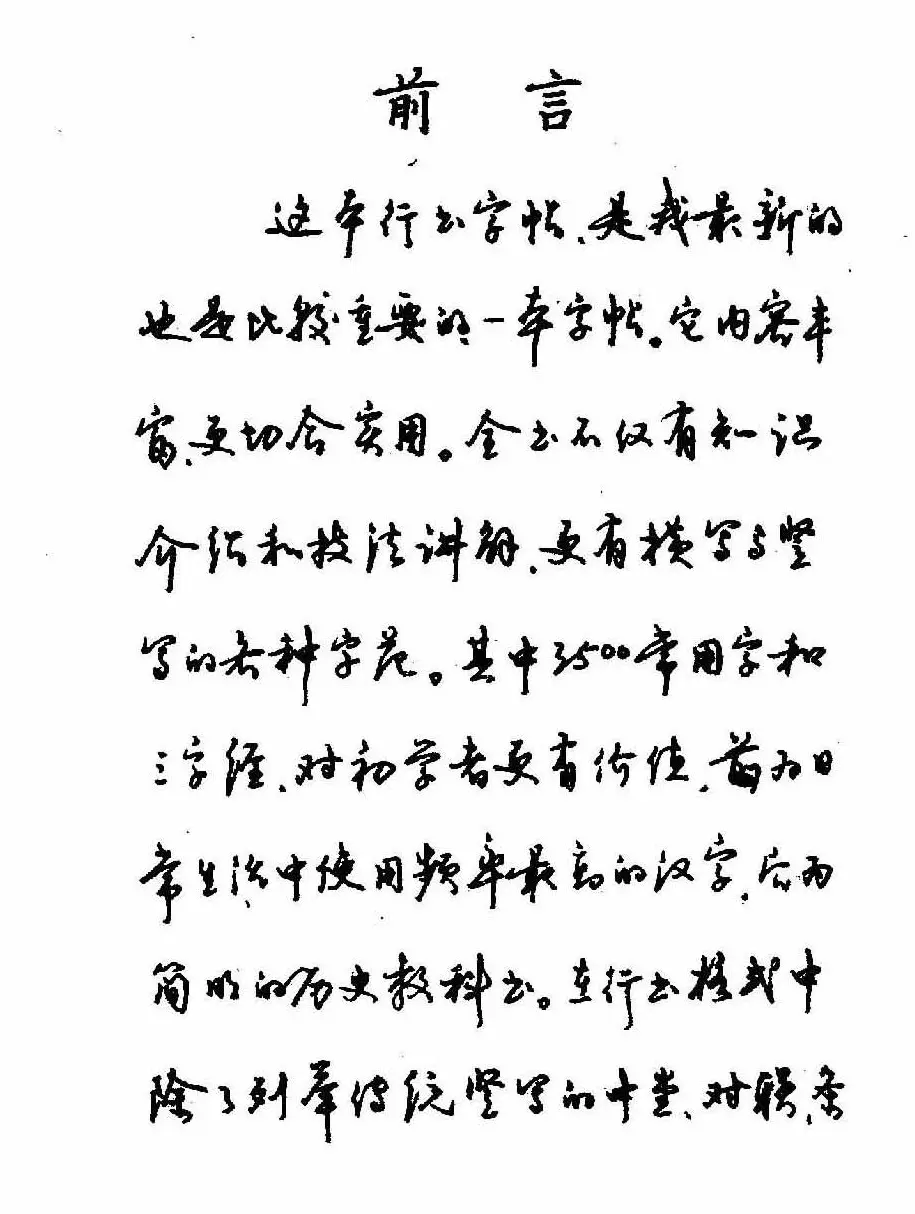 前言
这本行书字帖、是我最新的
也是比较重要的一本字帖。它内容丰
富、更切合实用。全书不仅有知识
介绍和技法讲解、更有横写与竖
写的各种字范。其中3500常用字和
三字经、对初学者更有价值、前为日
常生活中使用频率最高的汉字、后为
简明的历史教科书。在行书格式中
除了列举传统竖写的中堂、对联、条